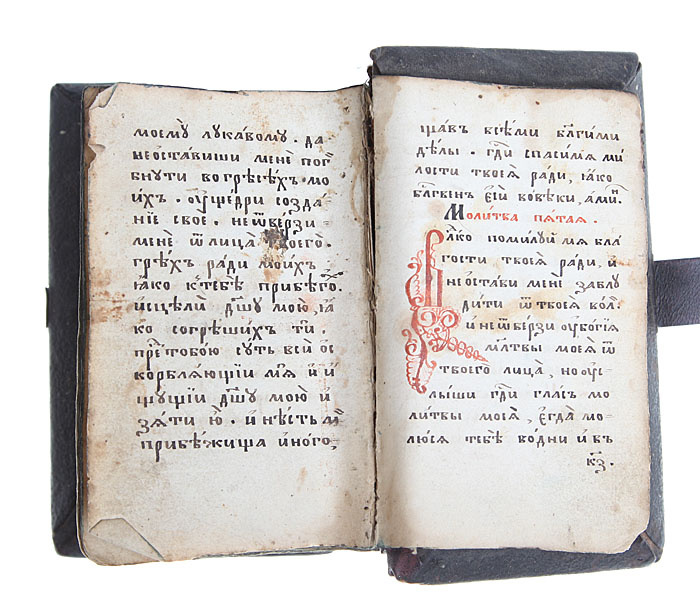 моемꙋ лꙋкавомꙋ · да
неѡставиши менѐ пог
бнꙋти вогресѣхъ · мо
ихъ · оущедри созда
нїе своѐ · неѿверзи
менѐ ѿлица твоегѡ ·
грѣхъ ради моихъ
ꙗко ктебѣ прибѣго҃х ·
исцѣли дш҃ꙋ мою̀, ꙗ
ко согрѣшихъ ти ·
пре́тобою сꙋть всѝ ѡс
корблѧющїи мѧ̀ и и
щꙋщїи дш҃ꙋ мою̀ и
зѧти ю̀ · и нѣсть м
прибѣжища иногѡ,
щавъ всѣми бл҃гими
дѣлы · гд҃и спаси мѧ ми
лости твоеѧ̀ ради, ꙗко
бл҃гвенъ есѝ вовѣки, ами́н ·
Молитва пѧтаѧ ·
Влⷣко помилꙋй мѧ бл҃а
гости твоеѧ ради, и
не ѡстави менѐ заблꙋ
дити ѿ твоеѧ волѧ̀
и неѿверзи оубогїѧ
мл҃твы моеѧ ѿ
твоегѡ лица, но оус
лыши гд҃и гласъ мо
литвы моеѧ, егда мо
люсѧ тебѣ водни и въ
кз҃ ·